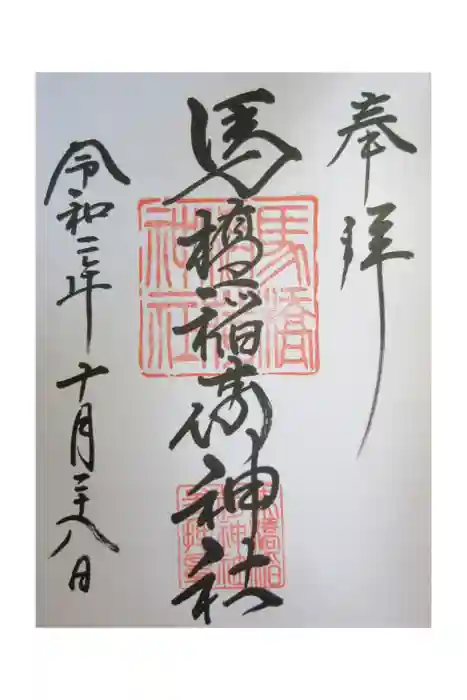 奉拝
馬橋稲荷神社
令和二年十月二十八日
馬橋稲荷神社